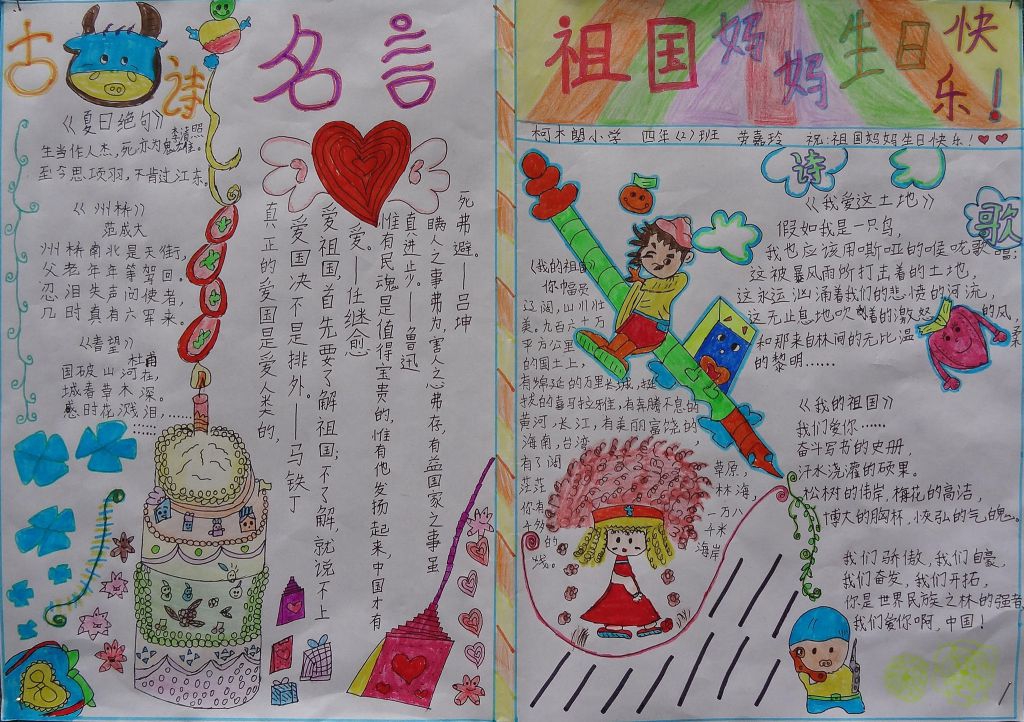 古诗 名言
《夏日绝句》
李清照
生当作人杰，死亦为鬼雄。
至今思项羽，不肯过江东。
《州桥》
范成大
州桥南北是天街，
父老年年等驾回。
忍泪失声问使者，
几时真有六军来。
《春望》
杜甫
国破山河在，
城春草木深。
感时花溅泪，……
真正的爱国是爱人类的，
爱国决不是排外。——马铁丁
爱祖国，首先要了解祖国；不了解，就说不上
爱。——任继愈
惟有民魂是值得宝贵的，惟有他发扬起来，中国才有
真进步。——鲁迅
瞒人之事弗为，害人之心弗存，有益国家之事虽
死弗避。——吕坤
祖国妈妈生日快乐！
小学 四年（2）班 嘉玲 祝：祖国妈妈生日快乐！
诗歌
《我爱这土地》
假如我是一只鸟，
我也应该用嘶哑的喉咙歌唱：
这被暴风雨所打击着的土地，
这永远汹涌着我们的悲愤的河流，
这无止息地吹刮着的激怒的风，
和那来自林间的无比温柔
的黎明……
《我的祖国》
你幅员
辽阔，山川壮
美，九百六十万
平方公里
的国土上，
有绵延的万里长城，挺
拔的喜马拉雅，有奔腾不息的
黄河，长江，有美丽富饶的
海南，台湾，
有辽阔 草原，
茫茫 林海，
你有 一万八
千多 千米
的 海岸
线。
《我的祖国》
我们爱你……
奋斗写书的史册，
汗水浇灌的硕果。
松树的伟岸，梅花的高洁，
博大的胸杯，恢弘的气的魄。
我们骄傲，我们自豪，
我们奋发，我们开拓，
你是世界民族之林的强者
我们爱你啊，中国！